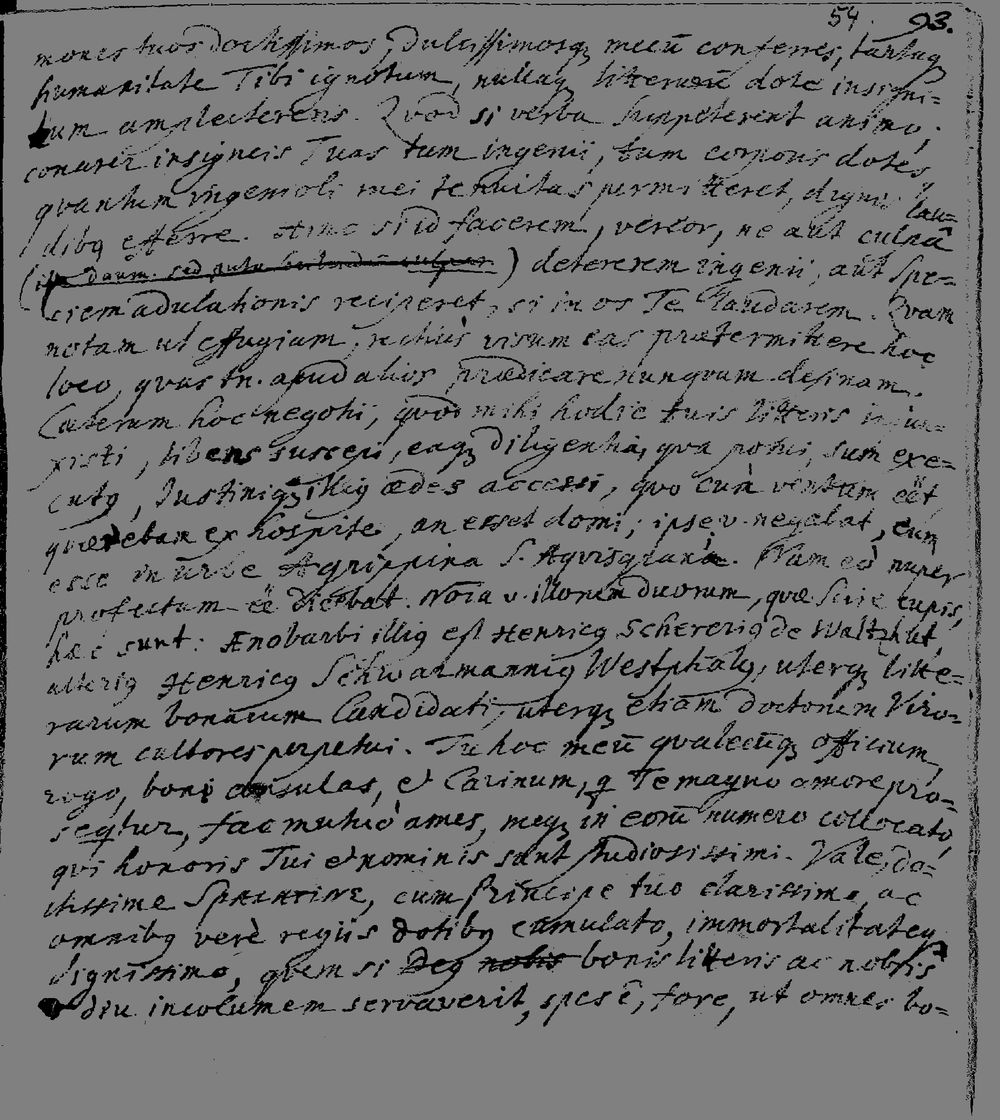 54. 93.
mones tuos doctissimos, dulcissimosq₃ mecū conferres, tantaq₃
humanitate Tibi ignotum, nullaq₃ litterarū dote insigni=
tum amplecterens. Qvod si verba suppeterent animo,
conarer insigneis Tuas tum ingenii, tum corporis dotes,
qvantum ingenioli mei tenuitas permitteret, dignis lau=
dibq efferre. At nc si id facerem, vereor, ne aut culpâ
( ) detererem ingenii, aut spe=
ciem adulationis reciperet, si in os Te laudarem. Qvam
notam ut effugiam, rectius visum eas prætermittere hoc
loco, qvas tn. apud alios prædicare nunqvam desinam.
Cæterum hoc negotii, qvod mihi hodie tuis litteris injun=
xisti, libens suscepi, eaq₃ diligentia, qva potui, sum exe=
cutq, Justiniq₃ illiq ædes accessi, qvo cùm ventum eēt,
qværebam ex hospite, an esset domi; ipse v. negabat, eum
esse in urbe Agrippina S. Aqvisgrana. Nam eò nuper
profectum eē dicebat. Noīa v. illorum duorum, qvæ scire cupis,
hæc sunt: Ænobarbi illiq est Henricq Schereriq de Waltzhut,
alteriq Henricq Schwarmanniq Westphalq, uterq₃ litte=
rarum bonarum Candidati, uterq₃ etiam doctorum Viro=
rum cultores perpetui. Tu hoc meū qvalecūq₃ officium,
rogo, boni consulas, & Carinum, q Te magno amore pro=
seqtur, fac mutuò ames, meq₃ in eorū numero collocato,
qvi honoris Tui & nominis sunt studiosissimi. Vale, do=
ctissime Spalatine, cum Principe tuo clarissimo, ac
omnibq verè regiis dotibq cumulato, immortalitateq₃
dignissimo, qvem si Deq nobis bonis litteris ac nobis
diu incolumem servaverit, spes ē, fore, ut omnes bo=